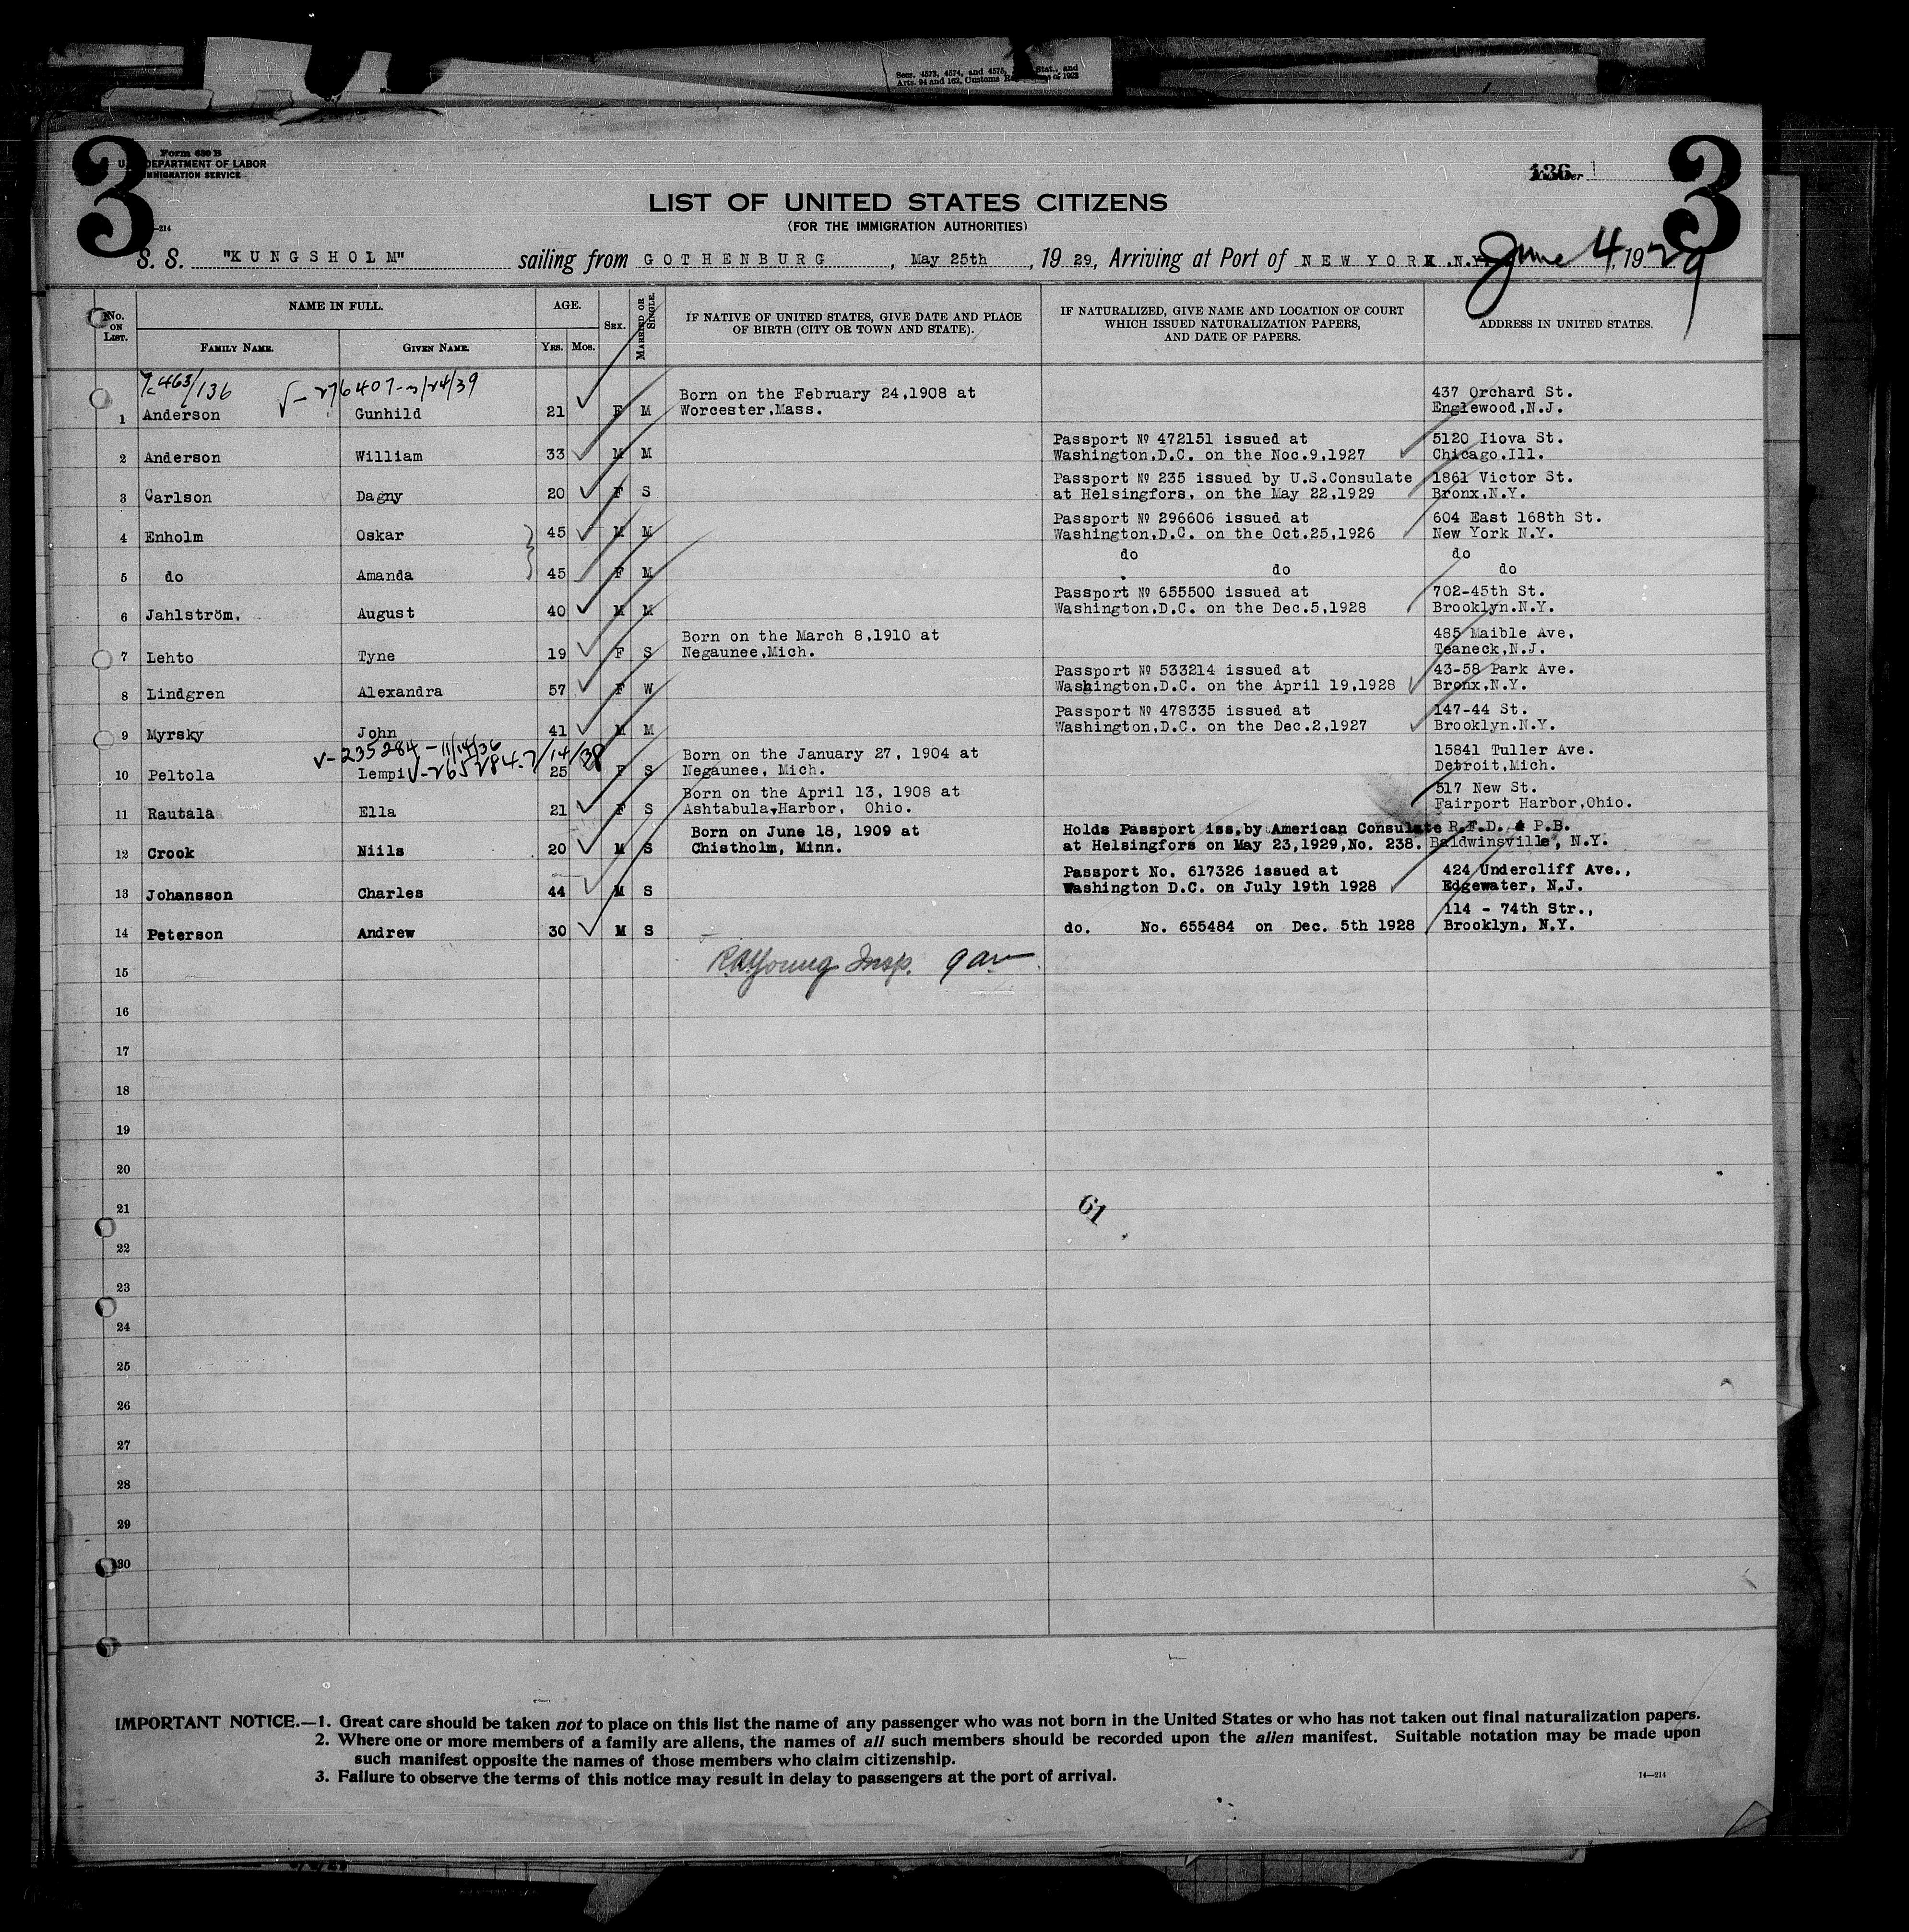 Secs. 4573, 4574, and 4575, Stat., and
Arts. 94 and 162, Customs of 1923
3
3
Form 630 B
DEPARTMENT OF LABOR
IMMIGRATION SERVICE
136
1
LIST OF UNITED STATES CITIZENS
(FOR THE IMMIGRATION AUTHORITIES)
S. S. "KUNGSHOLM" sailing from GOTHENBURG, May 25th, 1929, Arriving at Port of NEW YORK N.Y. June 4, 1929
No. ON LIST.
NAME IN FULL.
FAMILY NAME.
GIVEN NAME.
AGE.
YRS. MOS.
SEX.
MARRIED OR SINGLE.
IF NATIVE OF UNITED STATES, GIVE DATE AND PLACE
OF BIRTH (CITY OR TOWN AND STATE).
IF NATURALIZED, GIVE NAME AND LOCATION OF COURT
WHICH ISSUED NATURALIZATION PAPERS,
AND DATE OF PAPERS.
ADDRESS IN UNITED STATES.
463/136 √-276407-3/24/39
Born on the February 24,1908 at 437 Orchard St.
1 Anderson Gunhild 21 F M Worcester,Mass. Englewood,N.J.
Passport № 472151 issued at 5120 Iiova St.
2 Anderson William 33 M M Washington,D.C. on the Noc.9,1927 Chicago.Ill.
Passport № 235 issued by U.S.Consulate 1861 Victor St.
3 Carlson Dagny 20 F S at Helsingfors, on the May 22,1929 Bronx,N.Y.
Passport № 296606 issued at 604 East 168th St.
4 Enholm Oskar 45 M M Washington,D.C. on the Oct.25,1926 New York N.Y.
do do
5 do Amanda 45 F M do do
Passport № 655500 issued at 702-45th St.
6 Jahlström, August 40 M M Washington,D.C. on the Dec.5,1928 Brooklyn.N.Y.
Born on the March 8,1910 at 485 Maible Ave,
7 Lehto Tyne 19 F S Negaunee,Mich. Teaneck,N.J.
Passport № 533214 issued at 43-58 Park Ave.
8 Lindgren Alexandra 57 F W Washington,D.C. on the April 19,1928 Bronx,N.Y.
Passport № 478335 issued at 147-44 St.
9 Myrsky John 41 M M Washington,D.C. on the Dec.2,1927 Brooklyn.N.Y.
v-235284-11/14/36
Born on the January 27, 1904 at 15841 Tuller Ave.
10 Peltola Lempi v-265284-7/14/38 25 F S Negaunee, Mich. Detroit,Mich.
Born on the April 13, 1908 at 517 New St.
11 Rautala Ella 21 F S Ashtabula,Harbor, Ohio. Fairport Harbor,Ohio.
Born on June 18, 1909 at Holds Passport iss.by American Consulate R.F.D. & P.B.
12 Crook Niils 20 M S Chistholm, Minn. at Helsingfors on May 23,1929,No. 238. Baldwinsville, N.Y.
Passport No. 617326 issued at 424 Undercliff Ave.,
13 Johansson Charles 44 M S Washington D.C. on July 19th 1928 Edgewater, N.J.
114 - 74th Str.,
14 Peterson Andrew 30 M S do. No. 655484 on Dec. 5th 1928 Brooklyn, N.Y.
15 Young Insp. 9 am
16
17
18
19
20
21
61
22
23
24
25
26
27
28
29
30
IMPORTANT NOTICE.—1. Great care should be taken not to place on this list the name of any passenger who was not born in the United States or who has not taken out final naturalization papers.
2. Where one or more members of a family are aliens, the names of all such members should be recorded upon the alien manifest. Suitable notation may be made upon
such manifest opposite the names of those members who claim citizenship.
3. Failure to observe the terms of this notice may result in delay to passengers at the port of arrival.
14—214